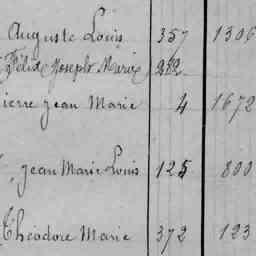 Auguste Louis 357 1306
Félix Joseph Marie 212
Pierre Jean Marie 4 1672
, Jean Marie Louis 125 800
Théodore Marie 372 123